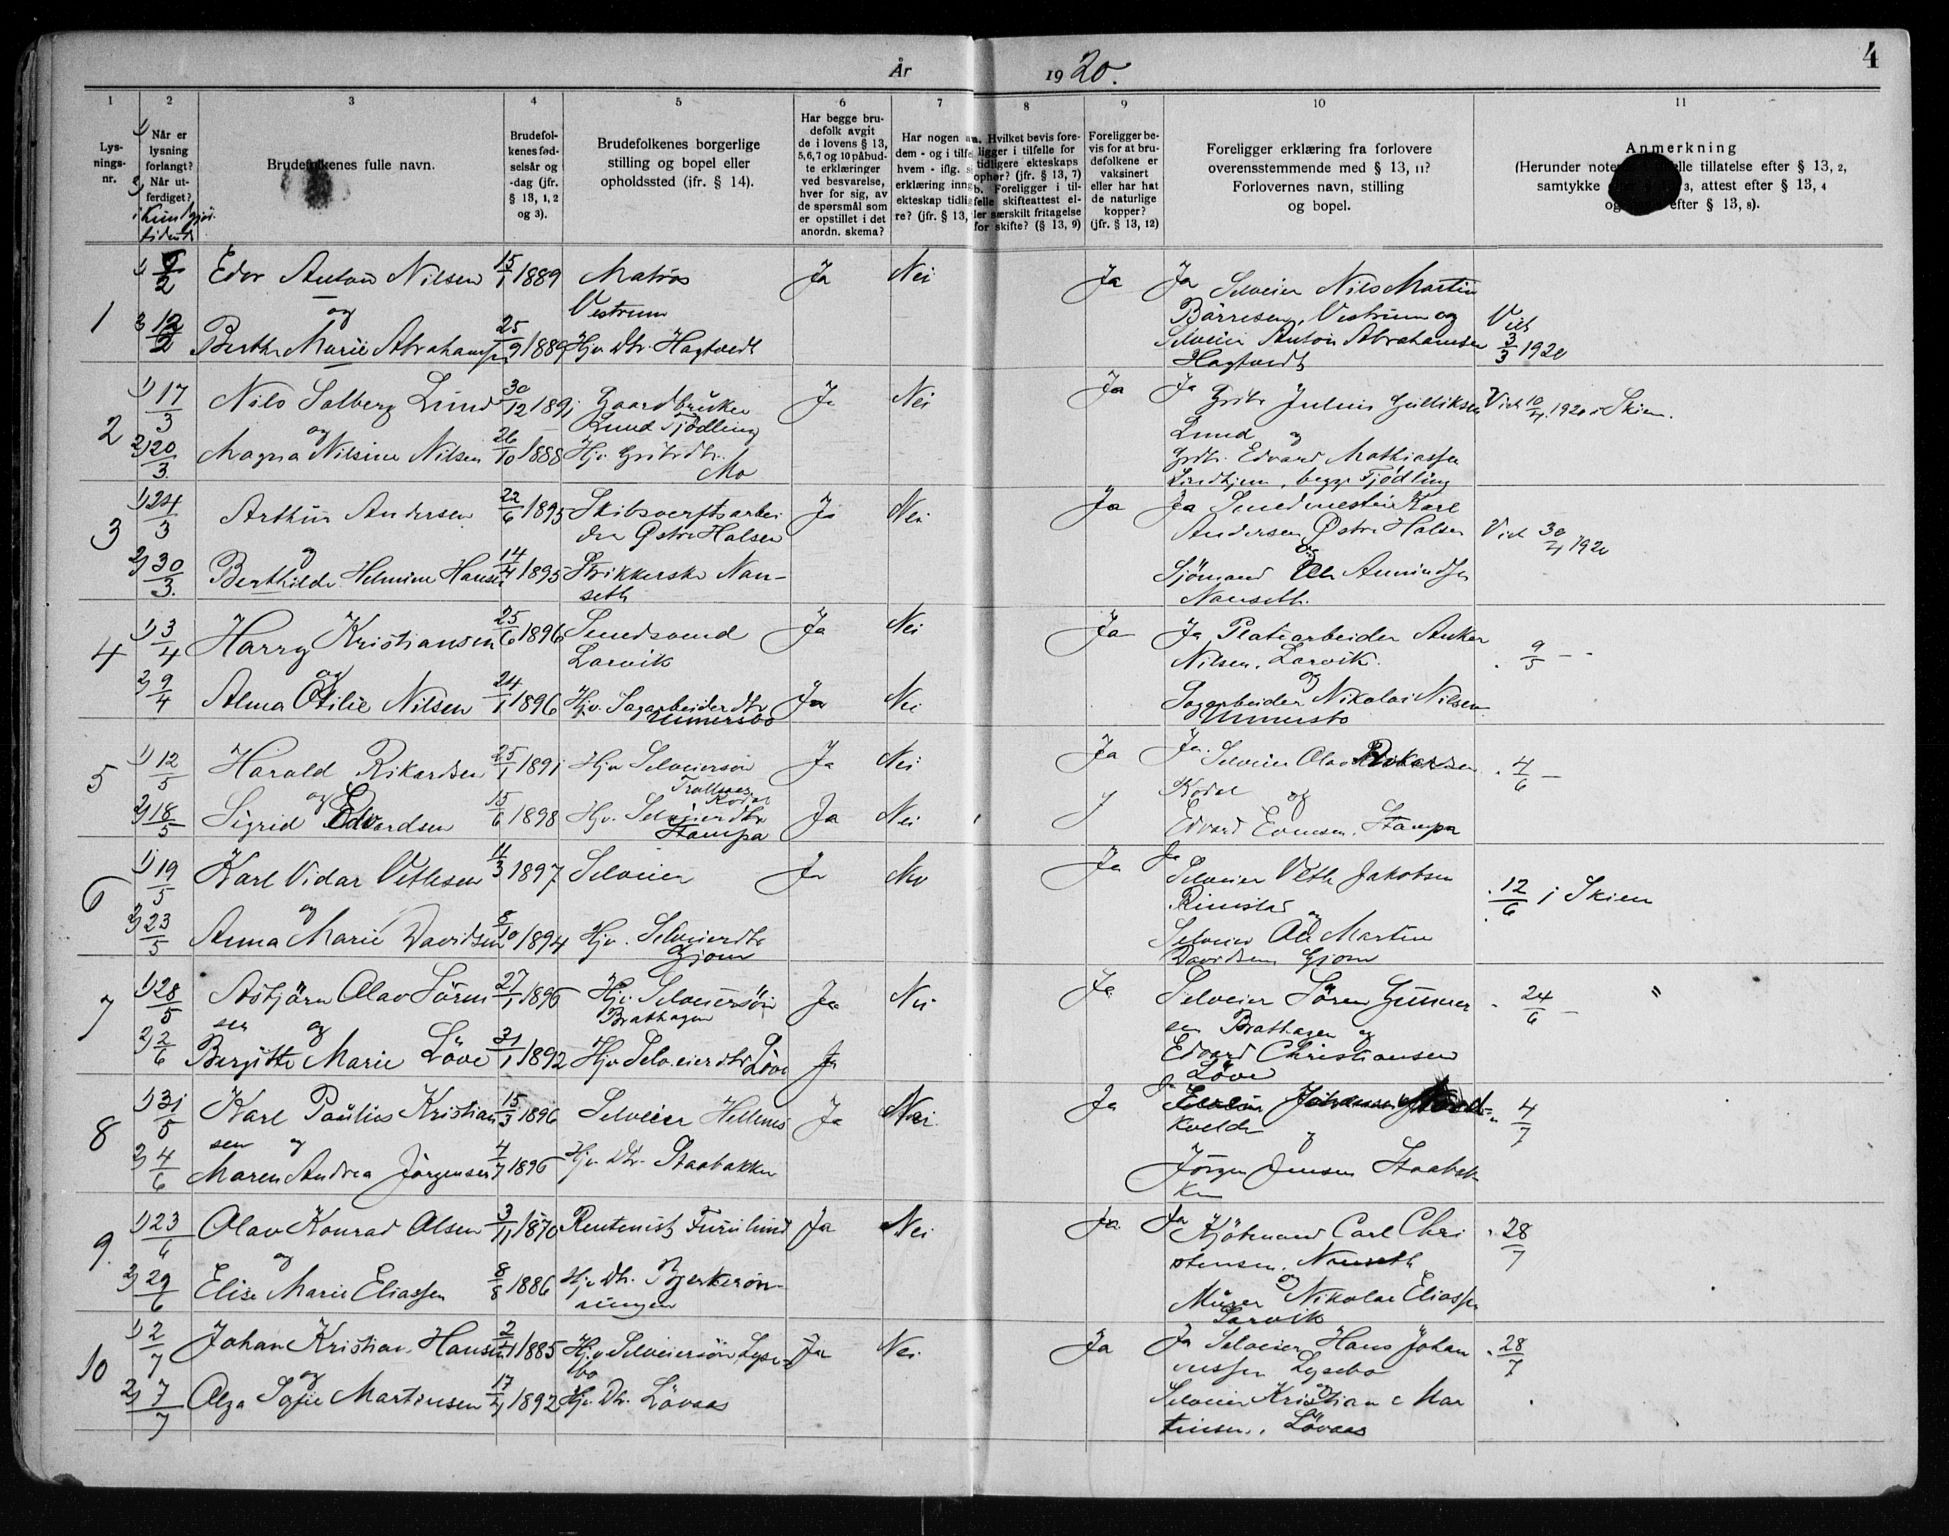 År 1920.
4
1 2 3 4 5 6 7 8 9 10 11
Lys-
nings-
nr.
1)
Når er
lysning
forlangt?
2)
Når ut-
ferdiget?
Brudefolkenes fulle navn.
Brudefol-
kenes fød-
selsår og
-dag (jfr.
§ 13, 1, 2
og 3).
Brudefolkenes borgerlige
stilling og bopel eller
opholdssted (jfr. § 14).
Har begge bru-
defolk avgit
de i lovens § 13,
5, 6, 7 og 10 påbud-
te erklæringer
ved besvarelse,
hver for sig, av
de spørsmål som
er opstillet i det
anordn. skema?
Har nogen
dem - og i tilfe
hvem - iflg.
erklæring inng
ekteskap tidlig
re? (jfr. § 13,
a. Hvilket bevis fore-
ligger i tilfelle for
tidligere ekteskaps
ophør? (jfr. § 13, 7)
b. Foreligger i til-
felle skifteattest el-
ler særskilt fritagelse
for skifte? (§ 13, 9)
Foreligger be-
vis for at bru-
defolkene er
vaksinert
eller har hat
de naturlige
kopper?
(jfr. § 13, 12)
Foreligger erklæring fra forlovere
overensstemmende med § 13, 11?
Forlovernes navn, stilling
og bopel.
Anmerkning
(Herunder noter elle tillatelse efter § 13, 2,
samtykke 3, attest efter § 13, 4
og efter § 13, 8).
1
1) 9/2 Edor Anton Nilsen 15/1 1889 Matros Ja Nei Ja Ja Selveier Nils Martin
og Vestrum Børresen, Vestrum og Viet
2) 12/2 Berthe Marie Abrahamsen 25/9 1889 Hjv. Dtr. Hagtvedt Selveier Anton Abrahamsen 3/3 1920
Hagtvedt
2
1) 17/3 Nils Solberg Lund 30/12 1891 Gaardbruker Ja Nei Ja Ja Grbr. Julius Gulliksen Viet 10/4 1920 i Skien.
og Lund Tjødling Lund og
2) 20/3 Magna Nilsine Nilsen 26/10 1888 Hjv. Grbrdtr. Grbr. Edvard Mathiassen
Mo Lindhjem, begge Tjødling
3
1) 24/3 Arthur Andersen 22/6 1895 Skibsverftsarbei Ja Nei Ja Ja Smedmester Karl
der Østre Halsen Andersen Østre Halsen Viet 30/4 1920
og og
2) 30/3 Berthilde Helmine Hansen 14/4 1895 Strikkerske Nan- Sjømand Ole Amundsen
seth Nanseth.
4
1) 3/4 Harry Kristiansen 25/6 1896 Smedsvend Ja Nei Ja Ja Platearbeider Anker
Larvik Nilsen, Larvik. " 9/5 - -
og og
2) 9/4 Alma Otilie Nilsen 24/1 1896 Hjv. Sagarbeiderdtr. Ja Nei Sagarbeider Nikolai Nilsen
Unnersbo Unnersbo
5
1) 12/5 Harald Rikardsen 25/1 1891 Hjv. Selveiersøn Ja Nei Ja Ja. Selveier Olav Rikardsen " 4/6 -
og Kodal Kodal og
2) 18/5 Sigrid Edvardsen 15/6 1898 Hjv. Selveierdtr. Ja Nei Edvard Evensen, Stampa
Stampa
6
1) 19/5 Karl Vidar Vethesen 11/3 1897. Selveier Ja Nei Ja Ja
Selveier Veth Jakobsen
og Rimstad og " 12/6 i Skien
2) 23/5 Anna Marie Davidsen 5/10 1894 Hjv. Selveierdtr. Selveier Ole Martin
Gjone Davidsen Gjone
7
1) 28/5 Asbjørn Olav Søren 27/1 1896 Hjv. Selveiersøn Ja Nei Ja Selveier Søren Gunner " 24/6 - "
sen og Brathagen sen Brathagen og
2) 2/6 Bergitte Marie Løve 31/1 1892 Hjv. Selveierdtr. Løve Ja Edvard Christiansen
Løve
8
1) 31/5 Karl Paulius Kristian 15/3 1896 Selveier Ja Nei Ja Ja " 4/7
sen og Kvelde og
2) 4/6 Maren Andrea Jørgensen 4/7 1896 Hjv. Dtr. Staabakken Jørgen Jensen Staabak-
ken
9.
1) 23/6 Olav Konrad Olsen 3/11 1870 Rentenist, Furulund Ja Nei Ja Ja Kjøbmand Carl Chri " 28/7
og stensen, Nanseth og
2) 29/6 Elise Marie Eliassen 8/8 1886 Hjv. Dtr. Bjerkerøn- Murer Nikolai Eliassen
ningen Larvik
10
1) 2/7 Johan Kristian Hansen 2/1 1885 Hjv. Selveiersøn Lyse- Ja Nei Ja Ja Selveier Hans Johan " 28/7
og bo nessen Lysebo og
2) 7/7 Olga Sofie Martinsen 17/4 1892 Hjv. Dtr. Løvaas Selveier Kristian Mar
tinsen, Løvaas